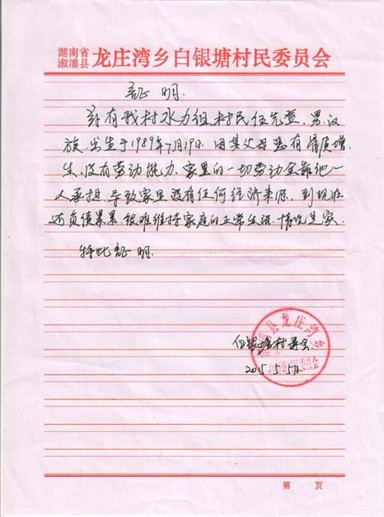 湖南省
溆浦县 龙庄湾乡白银塘村民委员会
证明
兹有我村水力组村民任先登,男,汉
族,出生于1989年7月19日,因其父母患有骨质增
生,没有劳动能力,家里的一切劳动全靠他一
人承担,导致家里没有任何经济来源,到现在
还负债累累,很难维持家庭的正常生活,情况属实。
特此证明.
县龙庄湾乡
白银塘村委会
2015.5.5
第 页